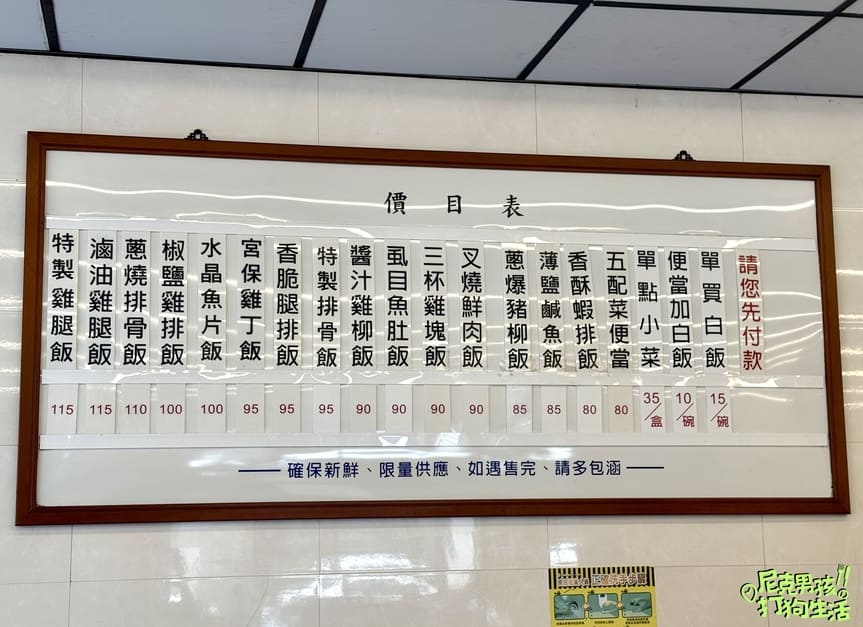 價目表
請您先付款
單買白飯 15/碗
便當加白飯 10/碗
單點小菜 35/盒
五配菜便當 80
香酥蝦排飯 80
薄鹽鹹魚飯 85
蔥爆豬柳飯 85
叉燒鮮肉飯 90
三杯雞塊飯 90
虱目魚肚飯 90
醬汁雞柳飯 90
特製排骨飯 95
香脆腿排飯 95
宮保雞丁飯 95
水晶魚片飯 100
椒鹽雞排飯 100
蔥燒排骨飯 110
滷油雞腿飯 115
特製雞腿飯 115
確保新鮮、限量供應、如遇售完、請多包涵
尼克男孩!!
打狗生活